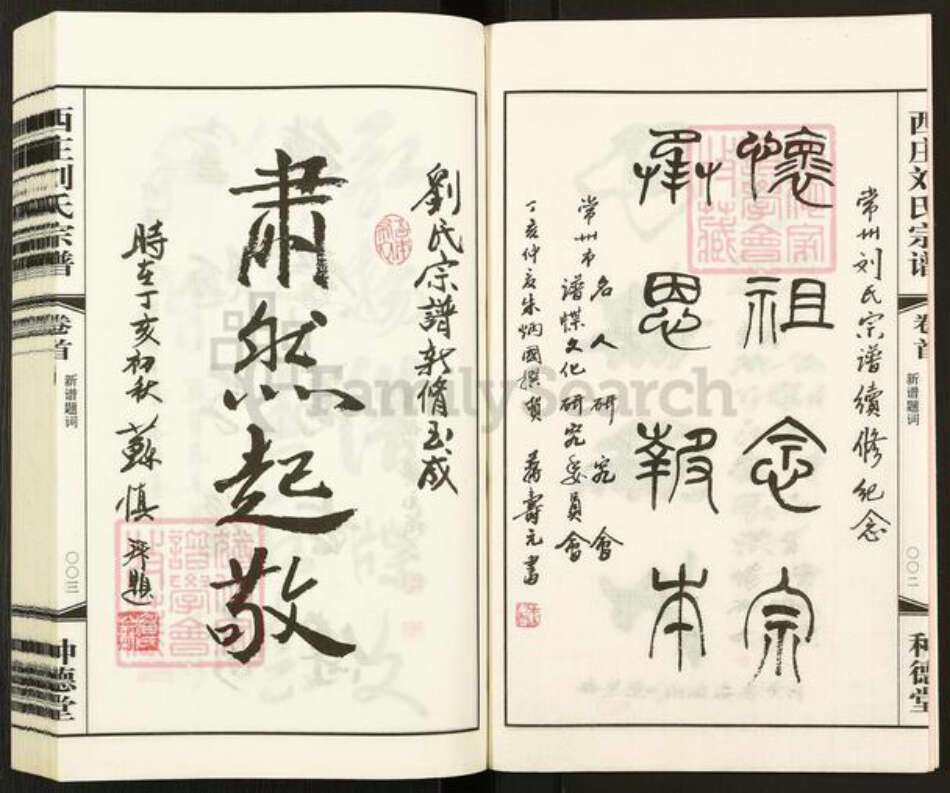 西庄刘氏宗谱
卷首
新谱题词
〇〇二
种德堂
常州刘氏宗谱續修紀念
懷祖念宗
奉恩報本
常州市名人研究會
譜牒文化研究委員會
丁亥仲夏朱炳國撰賀 蔣壽元書
劉氏宗譜新脩玉成
肅然起敬
時在丁亥初秋 蘇慎
題
西庄刘氏宗谱
卷首
新谱题词
〇〇三
种德堂
FamilySearch